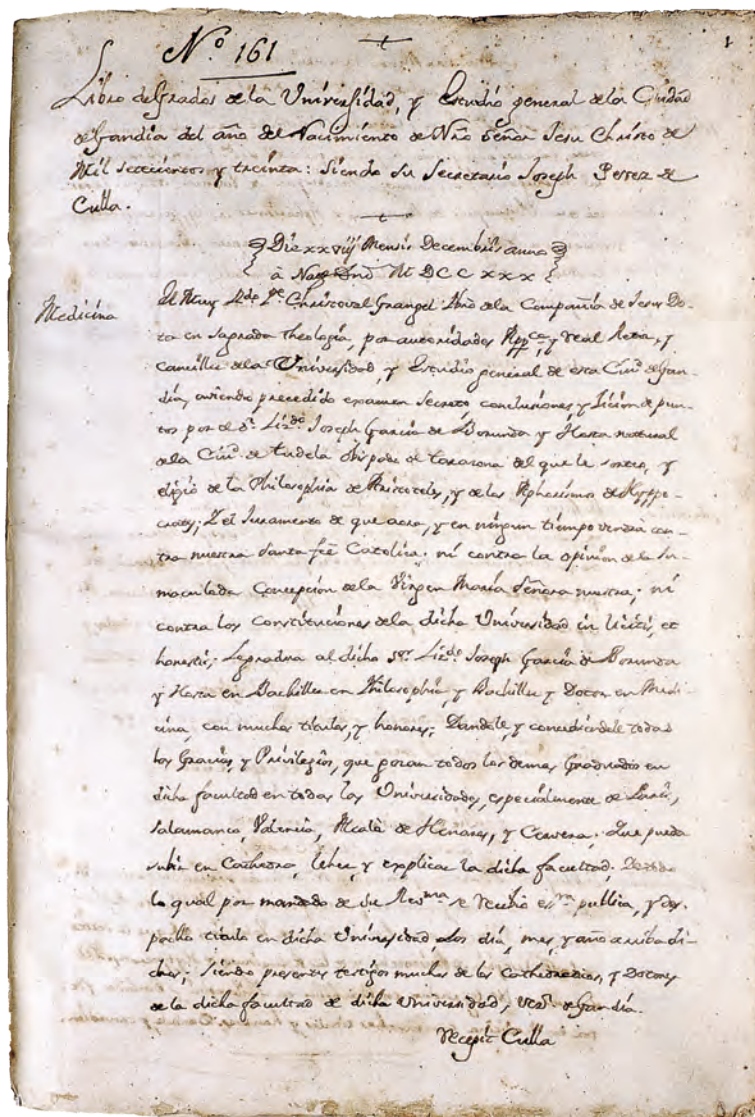 N.º 161
1
Libro de Grados de la Universidad, y Estudio general de la Ciudad
de Gandia del año del Nacimiento de Nro Señor Jesu Christo de
Mil setecientos y treinta: Siendo su Secretario Joseph Perez de
Culla.
Die xxviij Mensis Decembris anno
à Nate Dnō M DCC xxx
Medicina
El Muy Rdo Pe Christoval Grangel Rno de la Compañia de Jesus Do-
tor en Sagrada Theologia, por autoridades Appca, y Real Retor, y
Canciller de la Universidad, y Estudio general de esta Ciud de Gan-
dia, aviendo precedido examen secreto, conclusiones, y licion de pun-
tos por el dr Lizdo Joseph Garcia de Borunda y Hasta natural
de la Ciud de Tudela obispado de Tarazona del que le sorteo, y
eligio de la Philosophia de Aristoteles, y de los Aphorismos de Hyppo-
crates; Y el Juramento de que aora, y en ningun tiempo vendrà con-
tra nuestra Santa feè Catolica: ni contra la opinion de la In-
maculada Concepcion de la Virgen Maria Señora nuestra; ni
contra las Constituciones de la dicha Universidad in licitis, et
honestis; Le gradua al dicho Sor Lizdo Joseph Garcia de Borunda
y Hasta en Bachiller en Philosophia, y Bachiller y Dotor en Medi-
cina, con muchos titulos, y honores; Dandole, y concediendole todas
las Gracias, y Privilegios, que gozan todos los demas Graduados en
dicha facultad en todas las Universidades, especialmente de Paris,
Salamanca, Valencia, Alcalà de Henares, y Cervera; Que pueda
subir en Cathedra, leher, y explicar la dicha facultad; De todo
lo qual por mandado de Su Revma se recibio esra publica, y des-
pacho titulo en dicha Universidad, Los dia, mes, y año arriba di-
chos; siendo presentes testigos muchos de los Cathedraticos, y Dotores
de la dicha facultad de dicha Universidad, de Gandia.
Recepit Culla